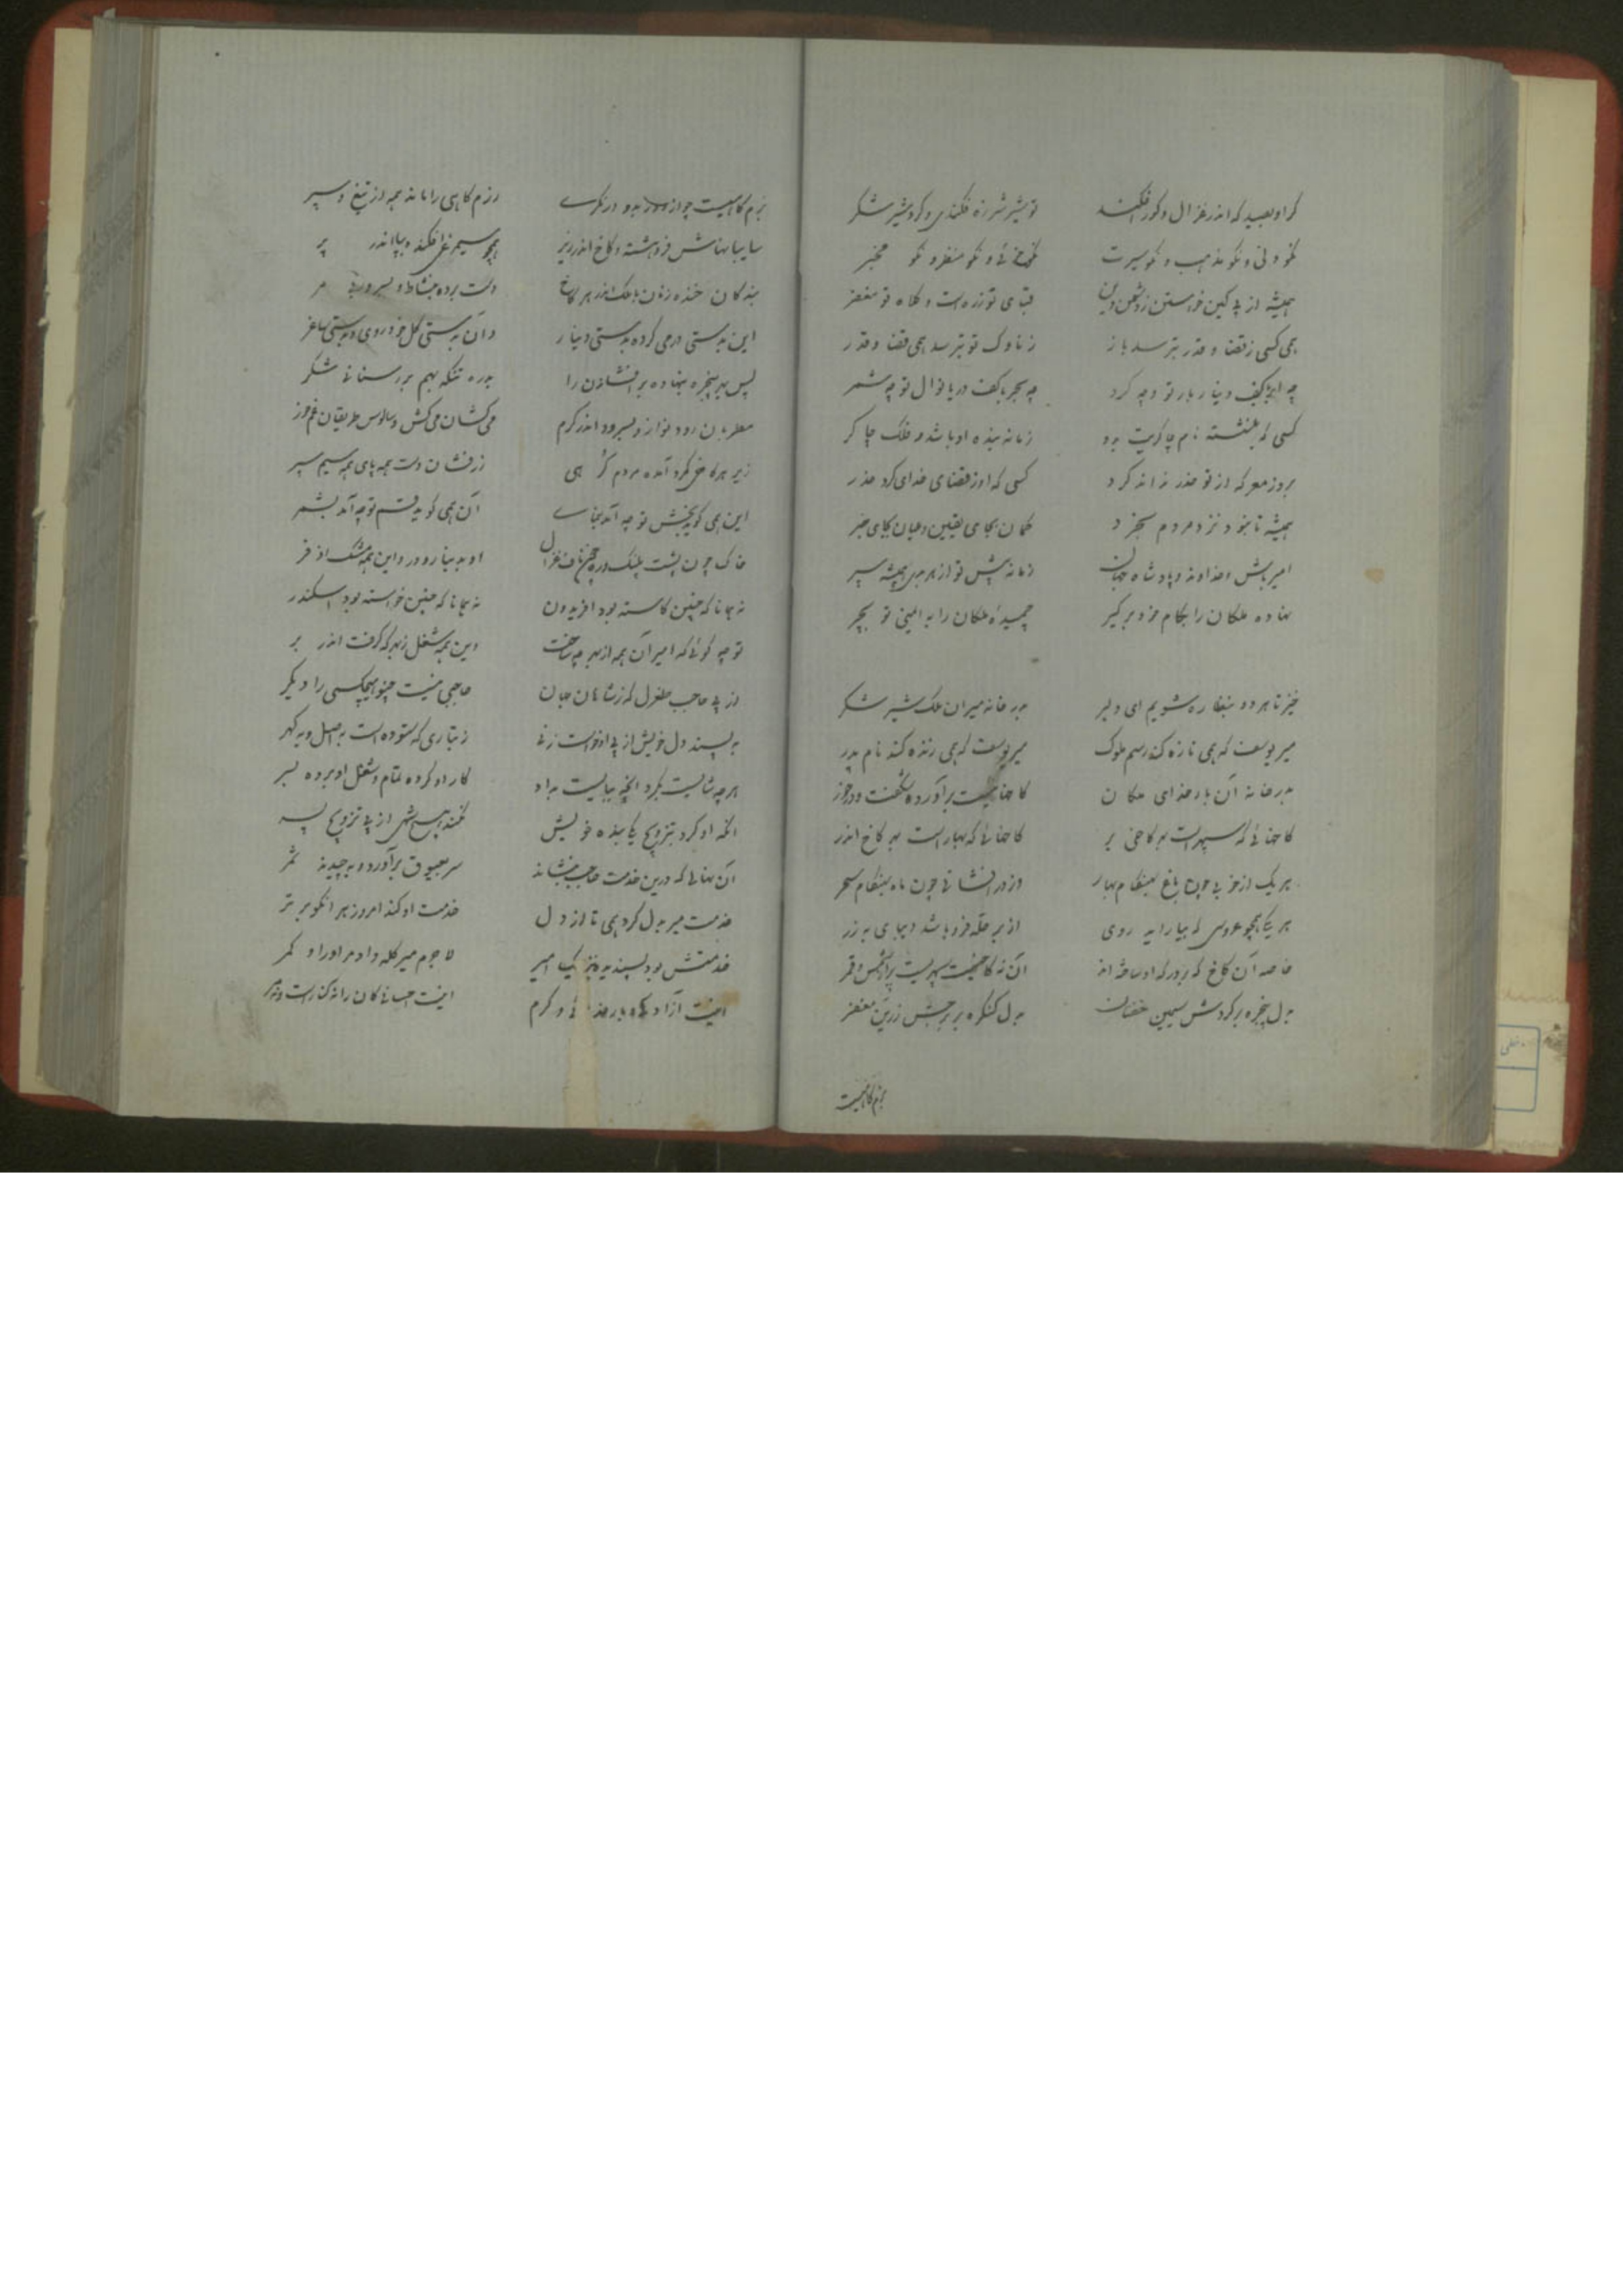 گر او بصید که اندر غزال و گور افکند
تو شیر شرزه فکندی و کرد شیر شکر
نکو دلی و نکو مذهب و نکو سیرت
نکو خوئی و نکو منظر و نکو مخبر
همیشه از پی کین خواستن ز دشمن دین
قبای تو زره است و کلاه تو مغفر
همی کسی ز قضا و قدر بترسد باز
ز ناوک تو بترسد همی قضا و قدر
چه ابر با کف دینار بار تو و چه گرد
چه بحر با کف دریا نوال تو چه شمر
کسی که بنشسته نام چاکریت برو
زمانه بنده او باشد و فلک چاکر
بروز معرکه از تو حذر نداند کرد
کسی که او ز قضای خدای کرد حذر
همیشه تا نبود نزد مردم بخرد
گمان بجای یقین و عیان بجای خبر
امیر باش و خداوند و پادشاه جهان
زمانه پیش تو از هر بدی همیشه سپر
نهاده ملکان را بکام خود برگیر
ملکان را به ایمنی تو بچر
خیز تا هر دو بنظاره شویم ای دلبر
بدر خانه میران ملک شیر شکر
میر یوسف که همی تازه کند رسم ملوک
میر یوسف که همی زنده کند نام پدر
بدر خانه آن بار خدای ملکان
کاخهائیست برآورده شگفت و در خور
کاخهائی که سپهریست بهر کاخی بر
کاخهائی که بهاریست بهر کاخ اندر
هر یک از خوبی چون باغ بهنگام بهار
وز در افشانی چون ماه بهنگام سحر
هر یکی همچو عروسی که بیاراید روی
از بر حله فرو باشد دیبای به زر
خاصه آن کاخ که بر درگه او ساخته اند
آن نه کاخیست سپهریست پر از شمس و قمر
بدل پنجره بر گردش سیمین خفتان
بدل کنگره بر برجش زرین مغفر
بزم گاهیست
بزم گاهیست چو از دور بدو در نگری
رزم گاهی را ماند همه از تیغ و سپر
سایبانهاش فروهشته و کاخ اندر زیر
همچو سیمرغی افکنده بپا اندر پر
بندگان خنده زنان با ملک اندر بر کاخ
دست برده بنشاط و
این بدستی درمی کرده بدستی دینار
و آن بدستی گل خود روی و بدستی ساغر
پس هر پنجره بنهاده بر افشاندن را
بدره و تنگه بهم بر ز سنانی شکر
مطربان رود نواز و اندر کرم
می کشان می کش و سالوس طریقان غم خور
زیر هر کاخی گرد آمده مردم گرهی
زر فشان دست همه پای همه سیم سپر
این همی گوید بخشش تو چه آمد بنمای
آن همی گوید قسم تو چه آمد بشمر
خاک چون پشت پلنگ و ره چون ناف غزال
او بدینار و در و این همه مشک اذفر
نه همانا که چنین کاسته بود افریدون
نه همانا که چنین خواسته بود اسکندر
تو چه گوئی که امیر آن همه از بهر چه ساخت
وین همه شغل ز بهر که گرفت اندر بر
از پی حاجب طغرل که ز شاهان جهان
حاجبی نیست چنو هیچکسی را دیگر
به پسند دل خویش از پی او خواست زنی
ز تباری که ستوده است به اصل و به گهر
هر چه شایست بکرد آنچه ببایست بداد
کار او کرده تمام و شغل او برده بسر
آنکه او کرد بتزویج یکی بنده خویش
نکند هیچ شهی از پی تزویج پسر
آن نهالی که درین خدمت حاجب بنشاند
سر بعیوق برآورد و به چیند ثمر
خدمت میر بدل کرد همی تا از دل
خدمت او کند امروز هر انکو برتر
خدمتش بود پسندیده بنزدیک امیر
لا جرم میر کله داد مر او را و کمر
اینت آزادگی و بار خدائی و کرم
اینت احسانی کان را نه کنارست و نه مر